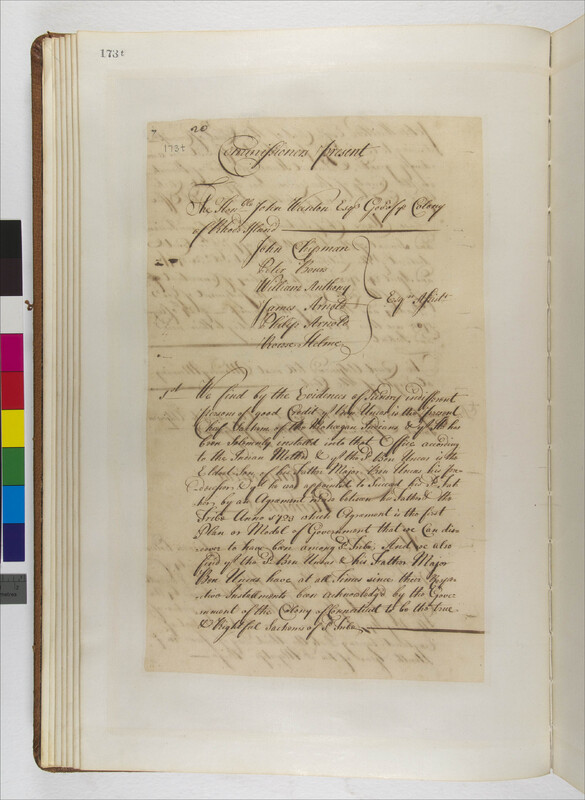 173t
7
20
173t
Commissioners present
The Honble John Wanton Esqr Govr of ye Colony
of Rhode Island
John Chipman
Peter Bours
William Anthony
James Arnold
Philip Arnold
Rouse Helme
Esqrs Assists
1st We find by the Evidences of Sundry indifferent
persons of good Credit yt Ben Uncas is the present
Chief Sachem of the Mohegan Indians & yt He has
been Solemnly installed into that Office according
to the Indian Method & yt the sd Ben Uncas is the
Eldest Son of his Father Major Ben Uncas his pre-
decessor & yt he was appointed to Succeed his sd Fat-
her by an Agreament made between his Father & the
Tribe Anno 1723 which Agreament is the first
Plan or Model of Government that we Can dis-
cover to have been among sd Tribe, And we also
find yt the sd Ben Uncas & his Father Major
Ben Uncas have at all Times since their Respec-
tive Instalments been acknowledgd by the Gover-
nment of the Colony of Connecticut to be the true
& Rightful Sachems of sd Tribe